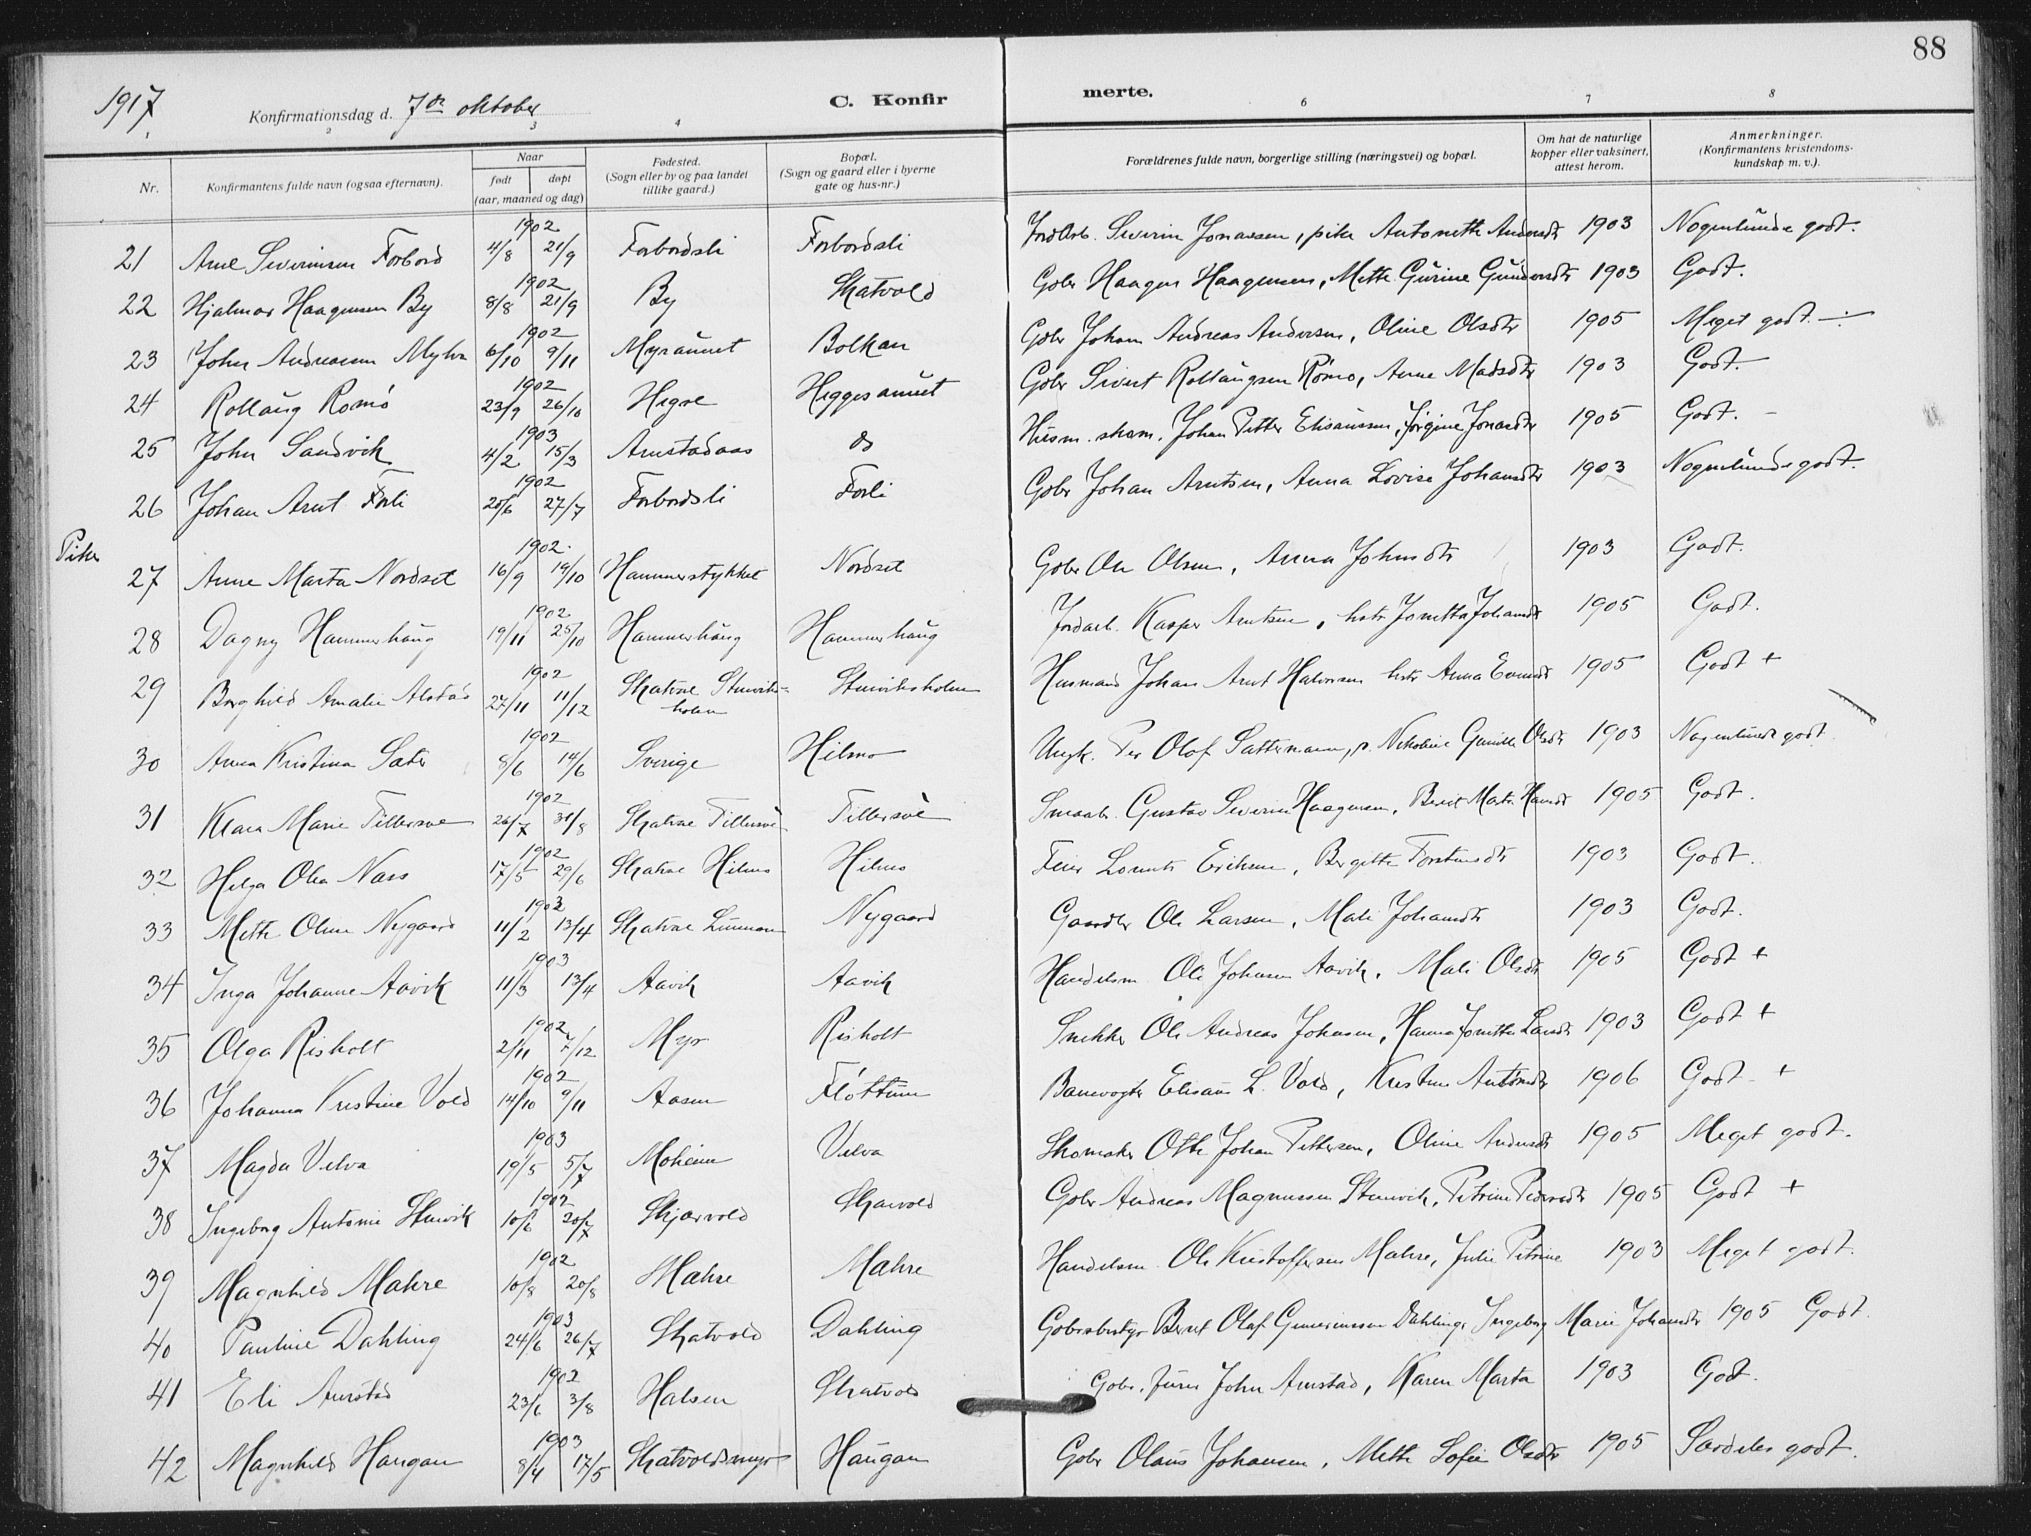 88
1917
Konfirmationsdag d. 7de oktober
C. Konfirmerte.
1 2 3 4 6 7 8
Nr. | Konfirmantens fulde navn (ogsaa efternavn). | Naar født døpt (aar, maaned og dag) | Fødested. (Sogn eller by og paa landet tillike gaard.) | Bopæl. (Sogn og gaard eller i byerne gate og hus-nr.) | Forældrenes fulde navn, borgerlige stilling (næringsvei) og bopæl. | Om hat de naturlige kopper eller vaksinert, attest herom. | Anmerkninger. (Konfirmantens kristendomskundskap m. v.).
21 Arne Severinsen Forbord 1902 4/8 21/9 Forbordsli Forbordsli Jordarb. Severin Jonassen, pike Antonette Andersdtr 1903 Nogenlunde godt.
22 Hjalmar Haagensen By 1902 8/8 21/9 By Skatvold Gbr Haagen Haagensen, Mette Gurine 1903 Godt.
23 John Andreassen Myhr 1902 6/10 9/11 Myraunet Bolkan Gbr Johan Andreas Andersen, Oline Olsdtr 1905 Meget godt.
24 Rollaug Romo 1902 23/9 26/10 Hegre Heggesaunet Gbr Sivert Rollaugsen Romo, Anne Madsdtr 1903 Godt.
25 John Sandvik 1903 4/2 15/3 Arnstadaas do Husm. skom. Johan Petter Elisæussen, Jørgine Jonasdtr 1905 Godt.
26 Johan Arnt Forli 1902 20/6 27/7 Forbordsli Forli Gbr Johan Arntsen, Anna Lovise Johansdtr 1903 Nogenlunde godt.
Piker
27 Anne Marta Nordset 1902 16/9 19/10 Hammerstykket Nordset Gbr Ole Olsen, Anna Johnsdtr 1903 Godt.
28 Dagny Hammerhaug 1902 19/11 25/10 Hammerhaug Hammerhaug Jordarb. Kasper Arntsen, hstr Jonetta Johansdtr 1905 Godt.
29 Borghild Amalie Alstad 1902 27/11 11/12 Skatval Stenviksholm Stenviksholm Husmand Johan Arnt Halvorsen hstr Anna 1905 Godt +
30 Anna Kristina Sæter 1902 8/6 14/6 Sverige Hilmo Ungk. Per Olof Sættermann, p. Nikoline Gunille Olsdtr 1903 Nogenlunde godt.
31 Klara Marie Tillersøe 1902 26/7 31/8 Skatval Tillersøe Tillersøe Smaabr. Gustav Severin Haagensen, Berit Marta 1905 Godt.
32 Helga Olea Næss 1902 17/5 29/6 Skatval Hilmo Hilmo Feier Lornts Eriksen, Bergitte 1903 Godt.
33 Mette Oline Nygaard 1903 11/2 13/4 Skatval Nygaard Gaardbr Ole Larsen, Mali Johansdtr 1903 Godt.
34 Inga Johanne Aavik 1903 11/3 13/4 Aavik Aavik Handelsm. Ole Johansen Aavik, Mali Olsdtr 1905 Godt +
35 Olga Risholt 1902 2/11 7/12 Myr Risholt Snekker Ole Andreas Johnsen, Hanna Jonetta 1903 Godt +
36 Johanna Kristine Vold 1902 14/10 9/11 Aasen Fløttum Banevogter Elisæus L. Vold, Kristine 1906 Godt +
37 Magda Velva 1903 19/5 5/7 Moheim Velva Skomaker Otto Johan Pettersen, Oline Andersdtr 1905 Meget godt.
38 Ingeborg Antonie Stenvik 1902 10/6 20/7 Skjærvold Skærvold Gbr Andreas Magnussen Stenvik, Petrine Pedersdtr 1905 Godt +
39 Magnhild Mæhre 1902 10/8 20/8 Mæhre Mæhre Handelsm. Ole Kristoffersen Mæhre, Julie Petrine 1903 Meget godt.
40 Pauline Dahling 1903 24/6 26/7 Skatvold Dahling Gbrsbestyr Bernt Olaf Dahling, Ingeborg Marie Johansdtr 1905 Godt.
41 Eli Arnstad 1902 23/6 3/8 Halsen Skatvold Gbr. John Arnstad, Karen Marta 1903 Godt.
42 Magnhild Haugan 1903 8/4 17/5 Skatvoldsmyr Haugan Gbr Olaus Johansen, Mette Sofie Olsdtr 1905 Særdeles godt.